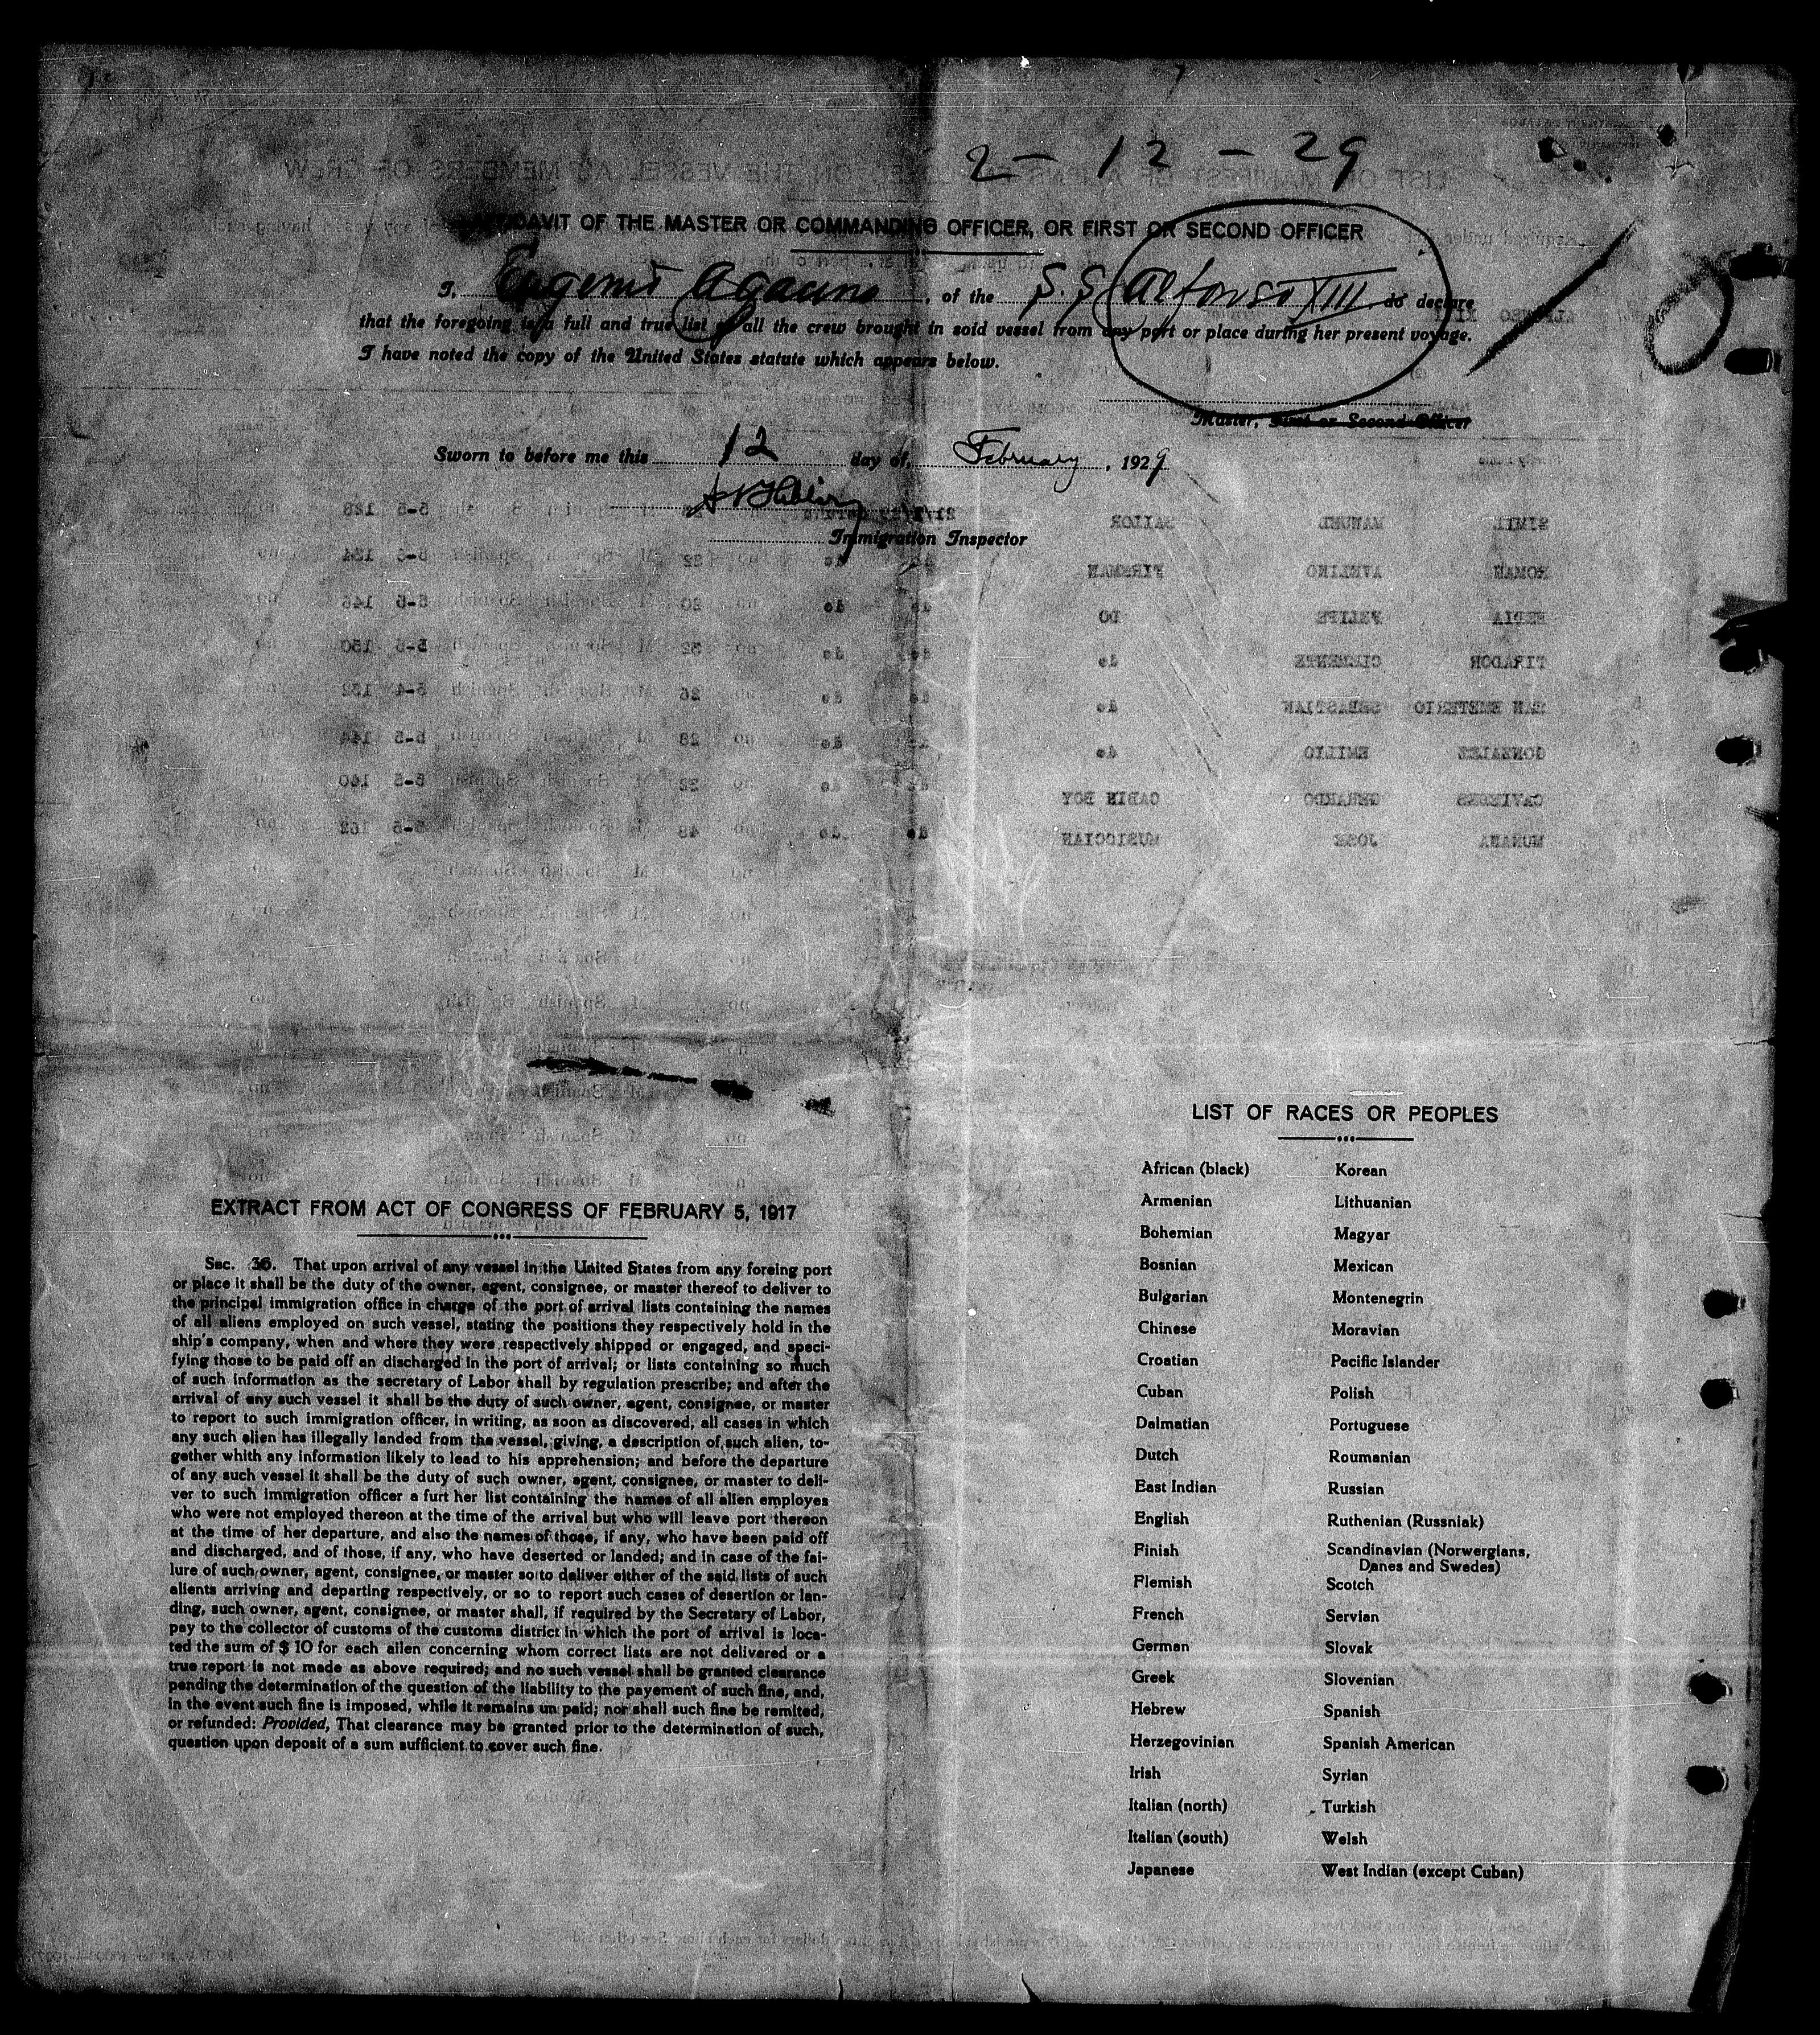 2 - 12 - 29
AFFIDAVIT OF THE MASTER OR COMMANDING OFFICER, OR FIRST OR SECOND OFFICER
I, Eugenio Agacino, of the S S Alfonso XIII do declare
that the foregoing is a full and true list of all the crew brought in said vessel from any port or place during her present voyage.
I have noted the copy of the United States statute which appears below.
Master, First or Second Officer
Sworn to before me this 12 day of, February, 1929
Immigration Inspector
EXTRACT FROM ACT OF CONGRESS OF FEBRUARY 5, 1917
Sec. 36. That upon arrival of any vessel in the United States from any foreing port
or place it shall be the duty of the owner, agent, consignee, or master thereof to deliver to
the principal immigration office in charge of the port of arrival lists containing the names
of all aliens employed on such vessel, stating the positions they respectively hold in the
ship's company, when and where they were respectively shipped or engaged, and speci-
fying those to be paid off an discharged in the port of arrival; or lists containing so much
of such information as the secretary of Labor shall by regulation prescribe; and after the
arrival of any such vessel it shall be the duty of such owner, agent, consignee, or master
to report to such immigration officer, in writing, as soon as discovered, all cases in which
any such alien has illegally landed from the vessel, giving, a description of such alien, to-
gether whith any information likely to lead to his apprehension; and before the departure
of any such vessel it shall be the duty of such owner, agent, consignee, or master to deli-
ver to such immigration officer a furt her list containing the names of all alien employes
who were not employed thereon at the time of the arrival but who will leave port thereon
at the time of her departure, and also the names of those, if any, who have been paid off
and discharged, and of those, if any, who have deserted or landed; and in case of the fai-
lure of such owner, agent, consignee, or master so to deliver either of the said lists of such
alients arriving and departing respectively, or so to report such cases of desertion or lan-
ding, such owner, agent, consignee, or master shall, if required by the Secretary of Labor,
pay to the collector of customs of the customs district in which the port of arrival is loca-
ted the sum of $ 10 for each ailen concerning whom correct lists are not delivered or a
true report is not made as above required; and no such vessel shall be granted clearance
pending the determination of the question of the liability to the payement of such fine, and,
in the event such fine is imposed, while it remains un paid; nor shall such fine be remited,
or refunded: Provided, That clearance may be granted prior to the determination of such,
question upon deposit of a sum sufficient to cover such fine.
LIST OF RACES OR PEOPLES
African (black)
Armenian
Bohemian
Bosnian
Bulgarian
Chinese
Croatian
Cuban
Dalmatian
Dutch
East Indian
English
Finish
Flemish
French
German
Greek
Hebrew
Herzegovinian
Irish
Italian (north)
Italian (south)
Japanese
Korean
Lithuanian
Magyar
Mexican
Montenegrin
Moravian
Pacific Islander
Polish
Portuguese
Roumanian
Russian
Ruthenian (Russniak)
Scandinavian (Norwergians,
Danes and Swedes)
Scotch
Servian
Slovak
Slovenian
Spanish
Spanish American
Syrian
Turkish
Welsh
West Indian (except Cuban)